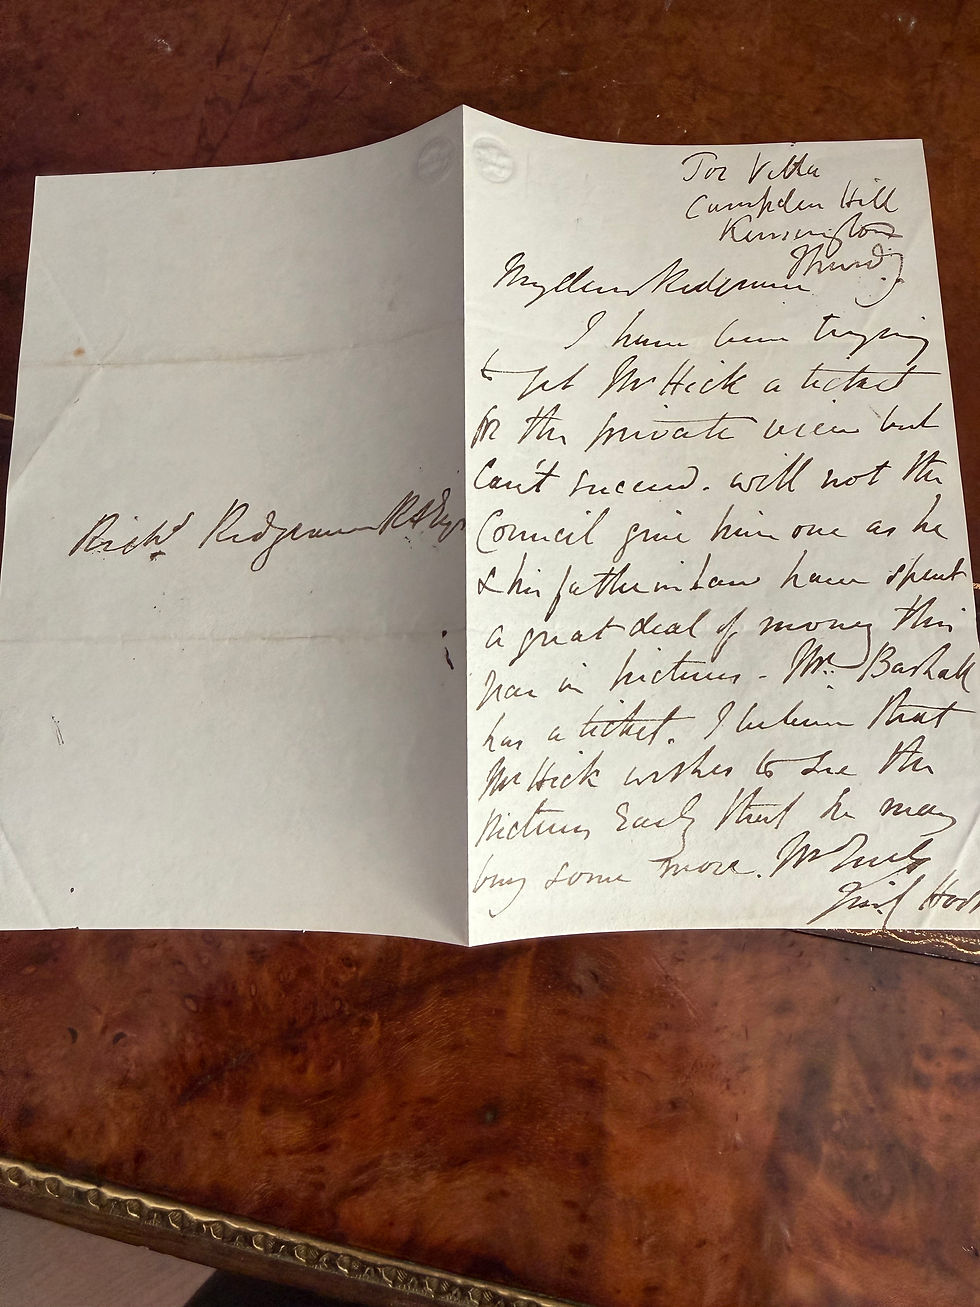 Richd Redgrave RA Esqr
Tor Villa
Campden Hill
Kensington
Thursdy
My dear Redgrave
I have been trying
to get Mr Hick a ticket
for the private view but
Can't succeed. will not the
Council give him one as he
& his father in law have spent
a great deal of money this
year in pictures - Mr. Bashall
has a ticket. I believe that
Mr Hick wishes to see the
pictures Early that he may
buy some more.